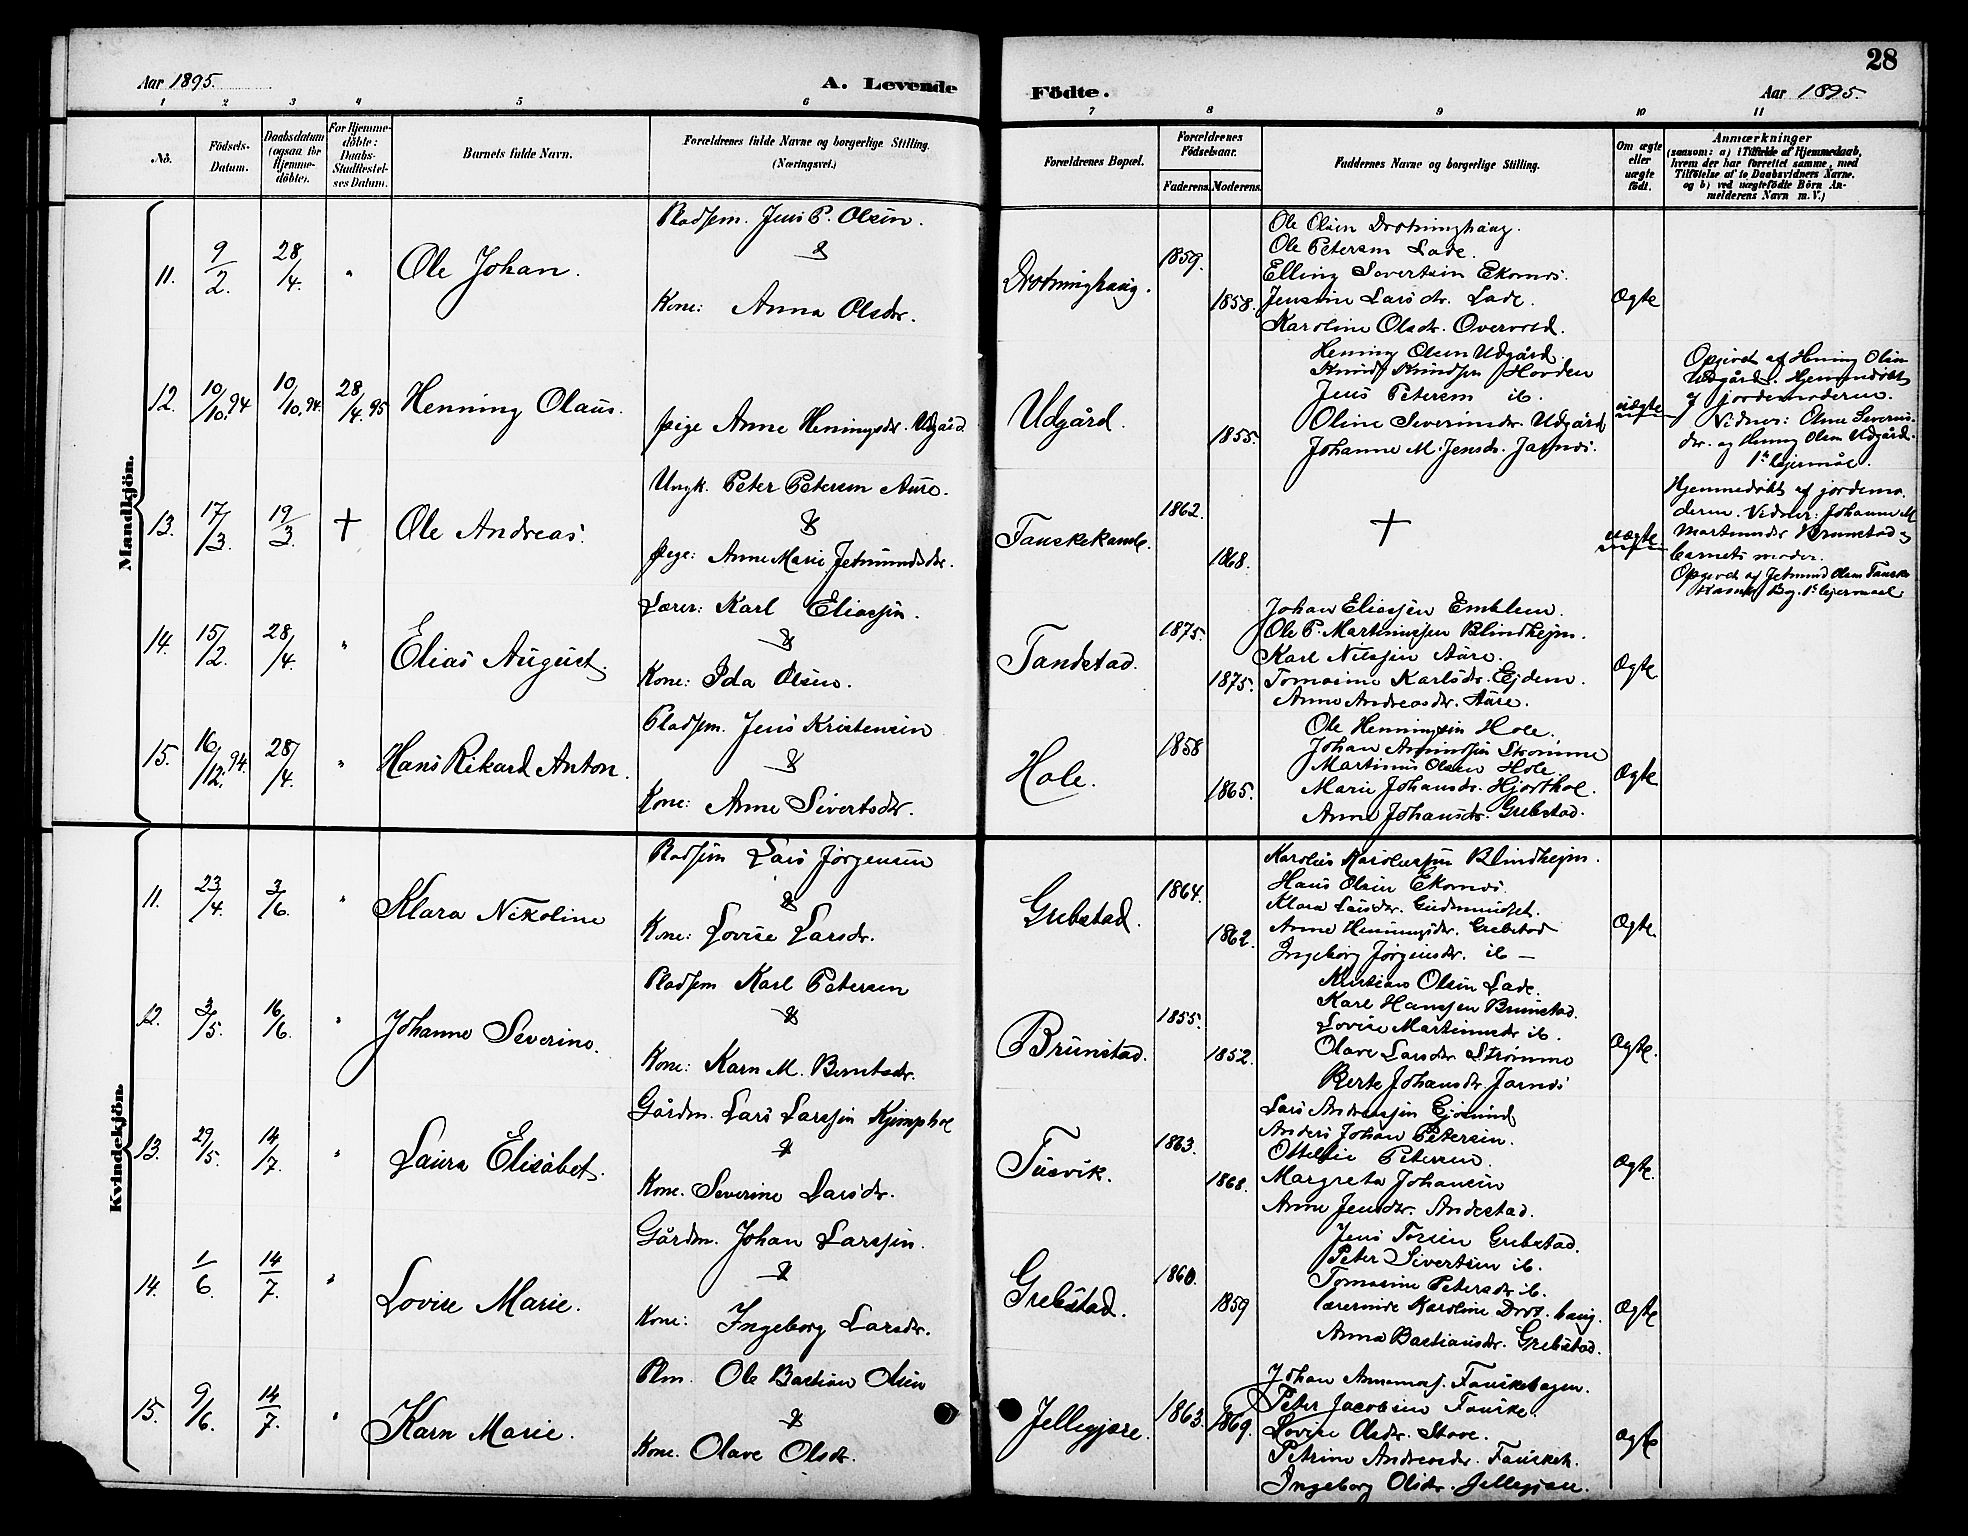 28
Aar 1895.
A. Levende
Födte.
Aar 1895.
1 2 3 4 5 6 7 8 9 10 11
No.
Födsels-Datum.
Daabsdatum (ogsaa for Hjemme-döbte).
For Hjemme-döbte: Daabs-Stadfæstel-ses Datum.
Barnets fulde Navn.
Forældrenes fulde Navne og borgerlige Stilling. (Næringsvei.)
Forældrenes Bopæl.
Forældrenes Födselsaar.
Faderens. Moderens.
Faddernes Navne og borgerlige Stilling.
Om ægte eller uægte födt.
Anmærkninger
(saasom: a) i Tilfælde af Hjemmedaab, hvem der har forrettet samme, med Tilföielse af to Daabsvidners Navne. og b) ved uægtefödte Börn An-melderens Navn m. V.)
Mandkjön.
11. 9/2. 28/4. "
Ole Johan.
Pladsm. Jens P. Olsen.
&
Kone: Anna Olsdr.
Drotninghaug.
1859.
1858.
Ole Olsen Drotninghaug.
Ole Petersen Lade.
Elling Sivertsen Ekornes.
Jensine Larsdr. Lade.
Karoline Olsdr. Overvold.
Ægte
12. 10/10.94 10/10.94. 28/4.95
Henning Olaus.
pige Anne Henningsdr. Udgård
Udgård.
1855.
Henning Olsen Udgård.
Knud Knudsen Hovden
Jens Petersen ib.
Oline Severinsdr. Udgård
Johanne M. Jensdr. Jarnes.
uægte
Opgivet af Henning Olsen
Udgård. Hjemmedøbt
af jordemoderen.
Vidner: Oline Severins-
dr. og Henning Olsen Udgård.
1ste lejermål.
13. 17/3. 19/3. †
Ole Andreas.
Ungk. Peter Petersen Aure.
&
pige: Anne Marie Jetmundsdr.
Fauskekamb.
1862.
1868.
†
uægte
Hjemmedøbt af jordemo-
deren. Vidner: Johanne M
Martinusdr Brunstad og
barnets moder.
Opgivet af Jetmund Olsen Fauske-
kamb. Beg. 1ste lejermaal
14. 15/2. 28/4. "
Elias August.
Lærer: Karl Eliassen.
&
Kone: Ida Olsen.
Tandstad.
1875.
1875.
Johan Eliassen Emblem.
Ole P. Martinussen Blindhejm.
Karl Nilssen Aure.
Tomasine Karlsdr. Ejdem.
Anne Andreasdr. Aure.
Ægte
15. 16/12.94. 28/4. "
Hans Rikard Anton.
Pladsm. Jens Kristensen
&
Kone: Anne Sivertsdr.
Hole.
1858
1865.
Ole Henningsen Hole.
Johan Amundsen Strømme
Martinus Olsen Hole.
Marie Johansdr. Hjorthol.
Anne Johansdr. Grebstad.
Ægte
Kvindekjön.
11. 23/4. 3/6. "
Klara Nikoline
Pladsm Lars Jørgensen
&
Kone: Lovise Larsdr.
Grebstad.
1864.
1862.
Karolus Karolussen Blindhejm.
Hans Olsen Ekornes.
Klara Larsdr. Gudmundset.
Anne Henningsdr. Grebstad
Ingeborg Jørgensdr. ib —
Ægte
12. 3/5. 16/6. "
Johanne Severine.
Pladsm Karl Petersen
&
Kone: Karn M. Berntsdr.
Brunstad.
1855.
1852.
Kristian Olsen Lade.
Karl Hanssen Brunstad.
Lovise Martinusdr ib.
Olave Larsdr. Strømme
Berte Johansdr. Jarnes
Ægte.
13. 29/5. 14/7. "
Laura Elisabet.
Gårdm. Lars Larssen Kjemphol
&
Kone. Severine Larsdr.
Tusvik.
1863.
1868.
Lars Andreassen Gjømind
Anders Johan Petersen.
Ottelie Petersen.
Margreta Johansen
Anne Jensdr. Andestad.
Ægte.
14. 1/6. 14/7. "
Lovise Marie.
Gårdm. Johan Larssen.
&
Kone: Ingeborg Larsdr.
Grebstad.
1860.
1859
Jens Tosien Grebstad.
Peter Sivertsen ib.
Tomasine Petersdr ib.
lærerinde Karoline Drot. haug.
Anna Bastiansdr. Grebstad.
Ægte
15. 9/6. 14/7. "
Karn Marie.
Plm. Ole Bastian Olsen
&
Kone. Olave Olsdr.
Jellegjære.
1863.
1869.
Johan Fauskebogen.
Peter Jacobsen Fauske.
Lovise Olsdr. Stove.
Petrine Andreasdr. Fauskek.
Ingeborg Olsdr. Jellegjære.
Ægte